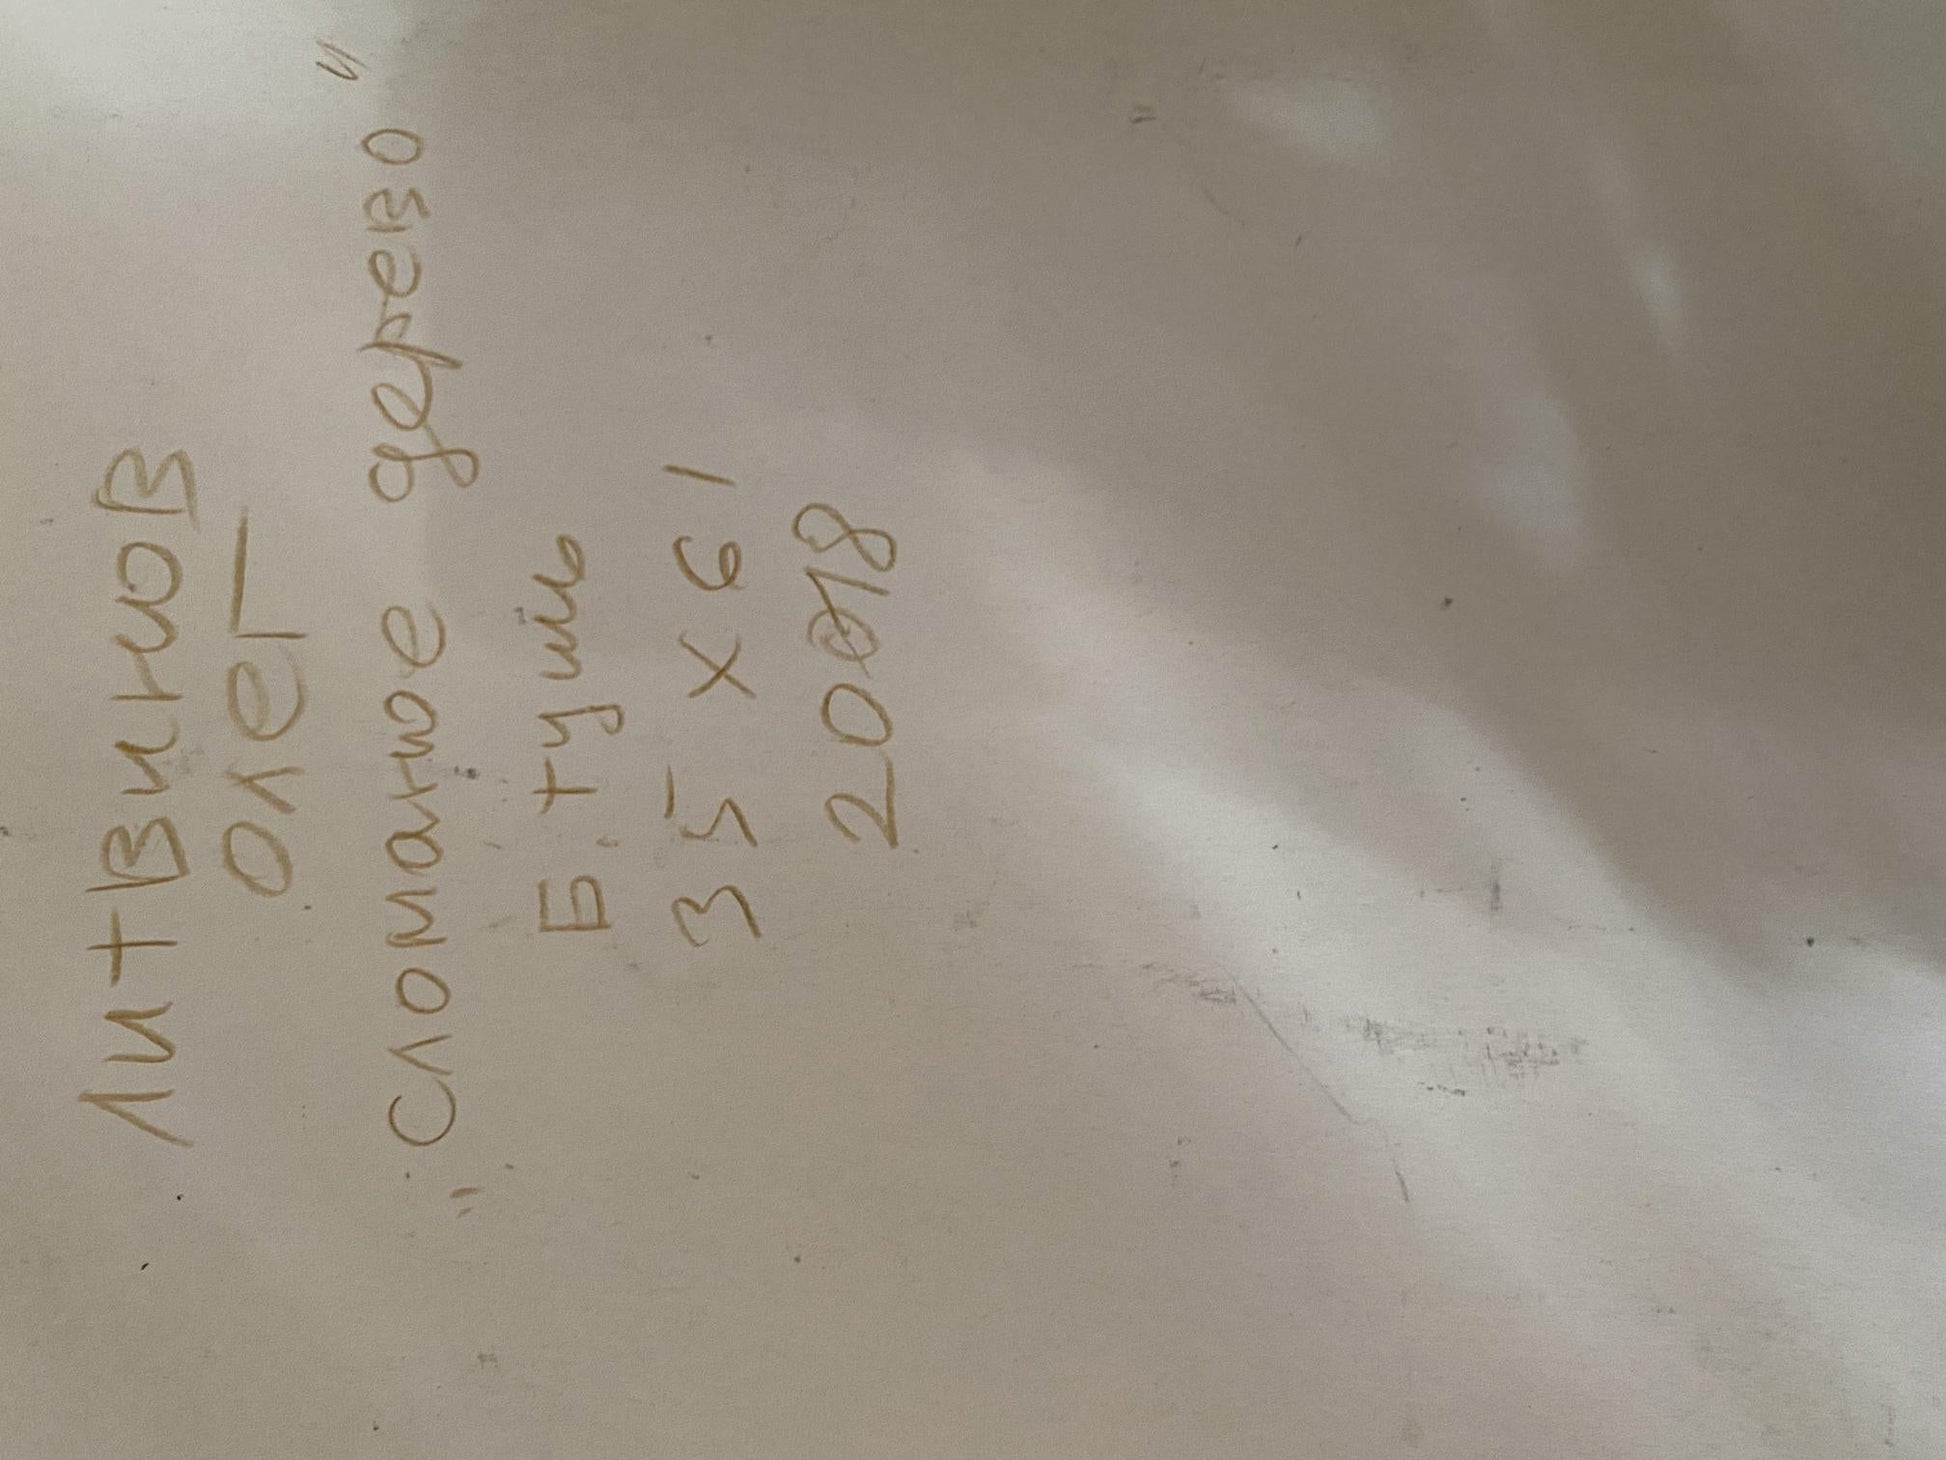 ЛИТВИНОВ
ОЛЕГ
"Сломаное дерево"
Б. тушь
35 х 61
2018